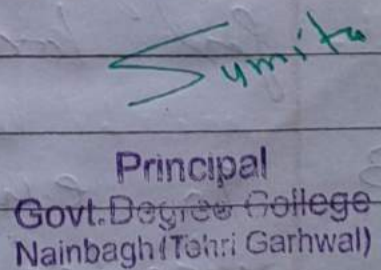 Sumita
Principal
Govt. Degree College
Nainbagh (Tehri Garhwal)